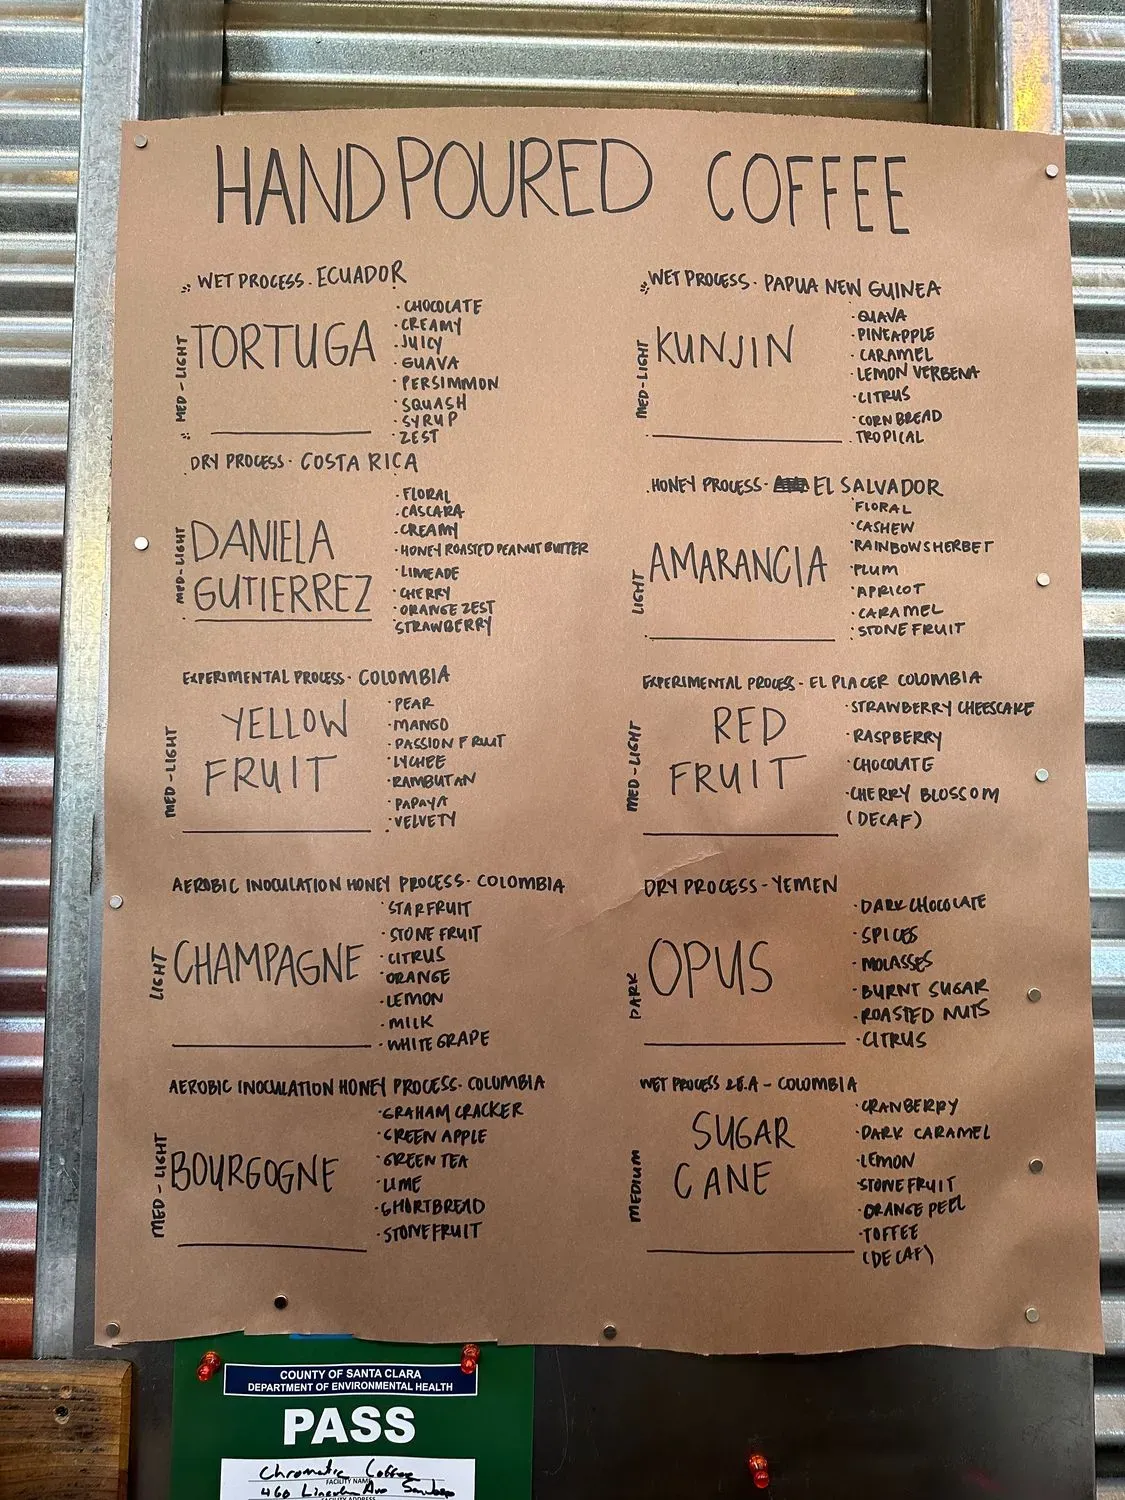 HAND POURED COFFEE
WET PROCESS. ECUADOR
MED-LIGHT
TORTUGA
· CHOCOLATE
· CREAMY
· JUICY
· GUAVA
· PERSIMMON
· SQUASH
· SYRUP
· ZEST
DRY PROCESS- COSTA RICA
MED-LIGHT
DANIELA
GUTIERREZ
· FLORAL
· CASCARA
· CREAMY
· HONEY ROASTED PEANUT BUTTER
· LIMEADE
· CHERRY
· ORANGE ZEST
STRAWBERRY
EXPERIMENTAL PROCESS- COLOMBIA
MED-LIGHT
YELLOW
FRUIT
· PEAR
· MANGO
· PASSION FRUIT
· LYCHEE
· RAMBUTAN
· PAPAYA
· VELVETY
AEROBIC INOCULATION HONEY PROCESS- COLOMBIA
LIGHT
CHAMPAGNE
· STARFRUIT
· STONE FRUIT
· CITRUS
· ORANGE
· LEMON
· MILK
· WHITE GRAPE
AEROBIC INOCULATION HONEY PROCESS- COLOMBIA
MED-LIGHT
BOURGOGNE
· GRAHAM CRACKER
· GREEN APPLE
· GREEN TEA
· LIME
· SHORTBREAD
· STONEFRUIT
WET PROCESS- PAPUA NEW GUINEA
MED-LIGHT
KUNJIN
· GUAVA
· PINEAPPLE
· CARAMEL
· LEMON VERBENA
· CITRUS
· CORN BREAD
· TROPICAL
HONEY PROCESS- EL SALVADOR
LIGHT
AMARANCIA
· FLORAL
· CASHEW
· RAINBOW SHERBET
· PLUM
· APRICOT
· CARAMEL
· STONE FRUIT
EXPERIMENTAL PROCESS- EL PLACER COLOMBIA
MED-LIGHT
RED
FRUIT
· STRAWBERRY CHEESCAKE
· RASPBERRY
· CHOCOLATE
· CHERRY BLOSSOM
(DECAF)
DRY PROCESS-YEMEN
DARK
OPUS
· DARK CHOCOLATE
· SPICES
· MOLASSES
· BURNT SUGAR
· ROASTED NUTS
· CITRUS
WET PROCESS E.A - COLOMBIA
MEDIUM
SUGAR
CANE
· CRANBERRY
· DARK CARAMEL
· LEMON
· STONEFRUIT
· ORANGE PEEL
· TOFFEE
(DECAF)
COUNTY OF SANTA CLARA
DEPARTMENT OF ENVIRONMENTAL HEALTH
PASS
Chromatic Coffee
FACILITY NAME
460 Lincoln Ave
FACILITY ADDRESS